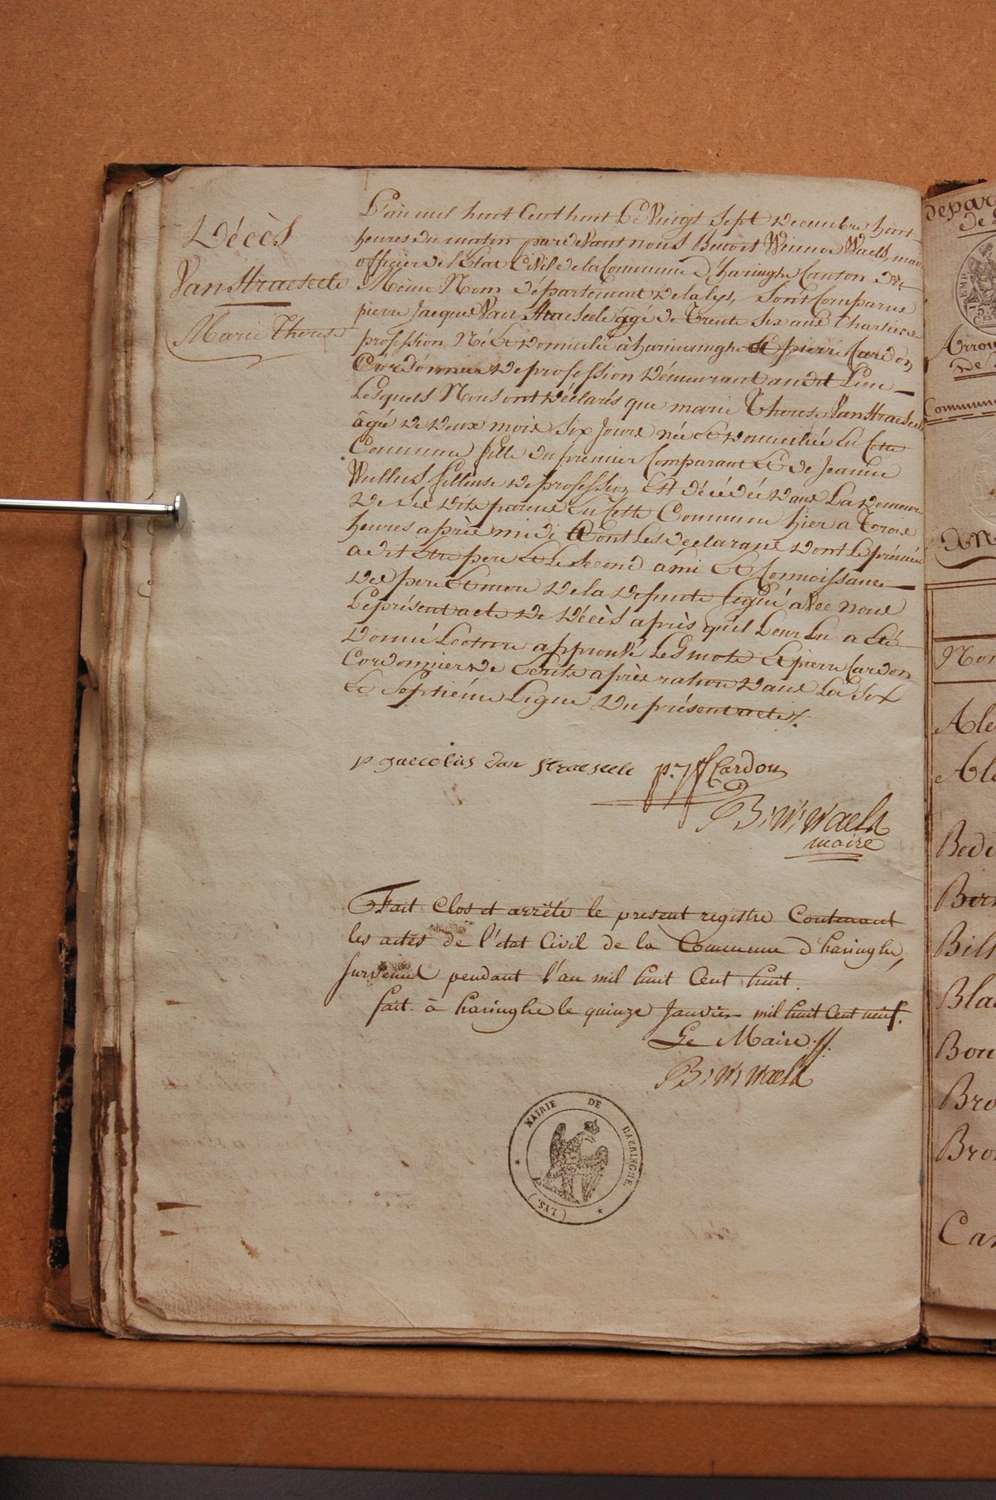 Décès
Van Straeseele
Marie Therese
L'an mil huit Cent huit Le Vingt Sept Decembre huit
heures du matin pardevant nous Benoit Winnoc Waels, maire
officier de l'Etat Civil de la Commune d'haringhe Canton du
Meme Nom departement de la lys, Sont Comparus
pierre Jacque Van Straeseele agé de Trente Six ans
profession Né et domicilié à haringhe et pierre Cardon
Cordonnier de profession demeurant audit Lieu
Lesquels Nous ont déclarés que marie Therese Van Straeseele
âgée de deux mois Six Jours née et domiciliée en Cette
Commune fille du premier Comparant et de Jeanne
fileuse de profession Est décédée dans La demeure
de en Cette Commune hier a
heures après midi et ont les déclarans dont le premier
a dit etre pere et le second ami et Connoissance
de pere et mere de la defunte signé avec nous
Le présent acte de Décès après qu'il Leur En a été
donné Lecture approuvé Les mots et pierre Cardon
Cordonnier de dans La Six
et Septième Ligne du présent acte.
van Straeseele p. J. Cardon
B: W: Waels
maire
Fait Clos et arrêté le present registre Contenant
les actes de l'état Civil de la Commune d'haringhe,
survenu pendant l'an mil huit Cent huit.
fait à haringhe le quinze Janvier mil huit Cent neuf.
Le Maire
B: W: Waels
MAIRIE DE HAERINGHE
(LYS.)
depar
de
Arro
De
Commune
Nom
Ale
Al
Bede
Bern
Bill
Bla
Bou
Bro
Bro
Car